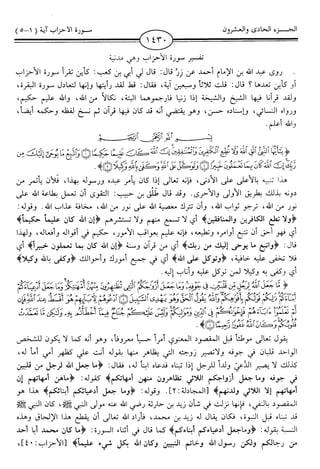 الجـــزء الحادى والعشرون
١٤٣٠
سورة الأحزاب آية (١-٥)
تفسير سورة الأحزاب وهي مدنية
روى عبد الله بن الإمام أحمد عن زر قال: قال لي أبي بن كعب: كأين تقرأ سورة الأحزاب
أو كأين تعدها؟ قال: قلت ثلاثاً وسبعين آية، فقال: قط لقد رأيتها وإنها لتعادل سورة البقرة،
ولقد قرأنا فيها الشيخ والشيخة إذا زنيا فارجموهما البتة، نكالاً من الله، والله عليم حكيم،
ورواه النسائي، وإسناده حسن، وهو يقتضي أنه قد كان فيها قرآن ثم نسخ لفظه وحكمه أيضاً،
والله أعلم.
هذا تنبيه بالأعلى على الأدنى، فإنه تعالى إذا كان يأمر عبده ورسوله بهذا، فلأن يأتمر من
دونه بذلك بطريق الأولى والأحرى. وقد قال طلق بن حبيب: التقوى أن تعمل بطاعة الله على
نور من الله، ترجو ثواب الله، وأن تترك معصية الله على نور من الله، مخافة عذاب الله. وقوله:
﴿ولا تطع الكافرين والمنافقين﴾ أي لا تسمع منهم ولا تستشرهم ﴿إن الله كان عليماً حكيماً﴾
أي فهو أحق أن تتبع أوامره وتطيعه، فإنه عليم بعواقب الأمور، حكيم في أقواله وأفعاله، ولهذا
قال: ﴿واتبع ما يوحى إليك من ربك﴾ أي من قرآن وسنة ﴿إن الله كان بما تعملون خبيراً﴾ أي
فلا تخفى عليه خافية، ﴿وتوكل على الله﴾ أي في جميع أمورك وأحوالك ﴿وكفى بالله وكيلاً﴾
أي وكفى به وكيلاً لمن توكل عليه وأناب إليه.
يقول تعالى موطئاً قبل المقصود المعنوي أمراً حسياً معروفاً، وهو أنه كما لا يكون للشخص
الواحد قلبان في جوفه ولاتصير زوجته التي يظاهر منها بقوله أنت علي كظهر أمي أماً له،
كذلك لا يصير الدعيّ ولداً للرجل إذا تبناه فدعاه ابناً له، فقال: ﴿ما جعل الله لرجل من قلبين
في جوفه وما جعل أزواجكم اللائي تظاهرون منهن أمهاتكم﴾ كقوله: ﴿ماهن أمهاتهم إن
أمهاتهم إلا اللائي ولدنهم﴾ [المجادلة: ٢]. وقوله: ﴿وما جعل أدعياءكم أبناءكم﴾ هذا هو
المقصود بالنفي، فإنها نزلت في شأن زيد بن حارثة رضي الله عنه مولى النبي ﷺ، كان النبي ﷺ
قد تبناه قبل النبوة، فكان يقال له زيد بن محمد، فأراد الله تعالى أن يقطع هذا الإلحاق وهذه
النسبة بقوله: ﴿وماجعل أدعياءكم أبناءكم﴾ كما قال في أثناء السورة: ﴿ما كان محمد أبا أحد
من رجالكم ولكن رسول الله وخاتم النبيين وكان الله بكل شيء عليماً﴾ [الأحزاب: ٤٠]،